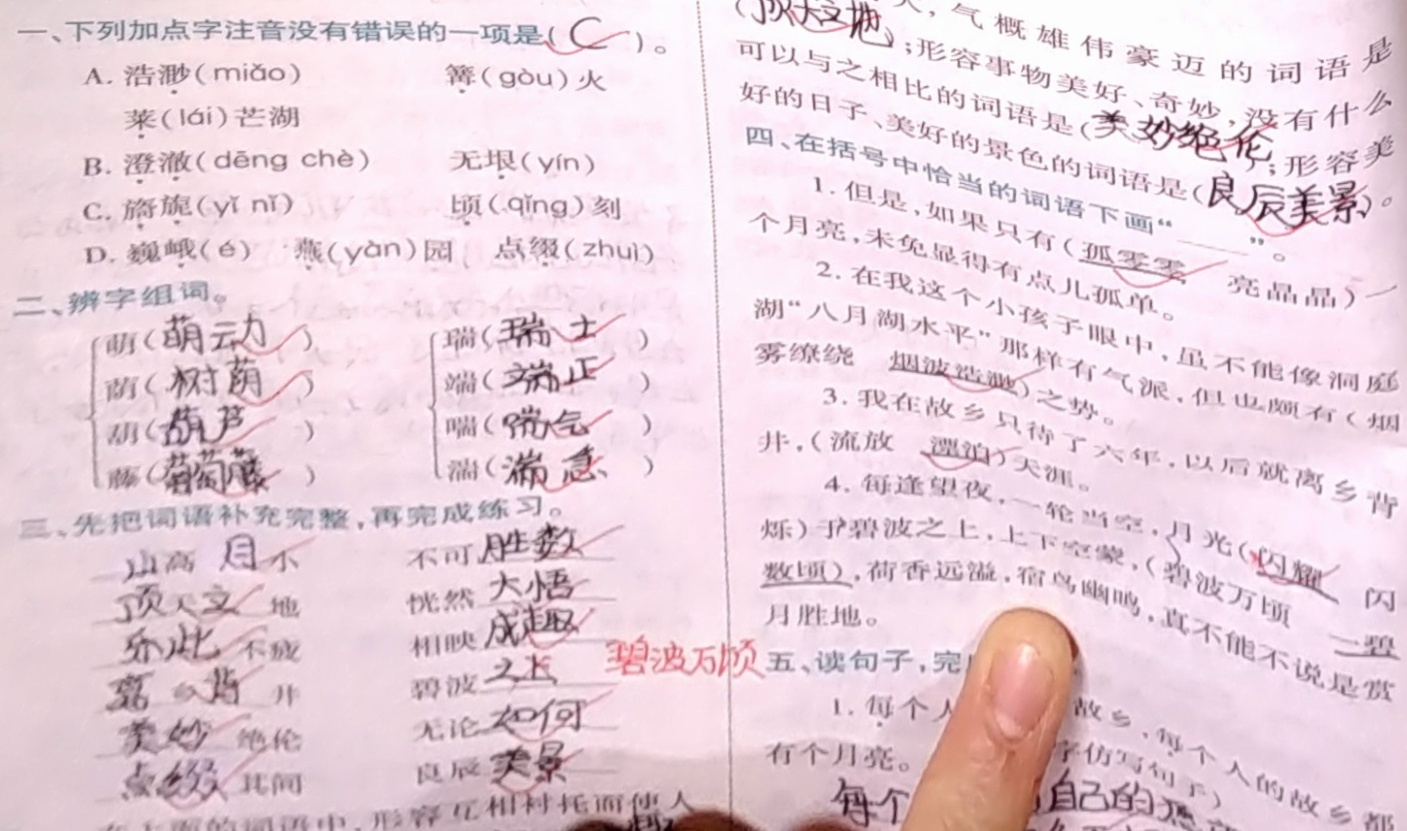 一、下列加点字注音没有错误的一项是( C )。
A. 浩渺(miǎo) 篝(gòu)火
莱(lái)芒湖
B. 澄澈(dēng chè) 无垠(yín)
C. 旖旎(yǐ nǐ) 顷(qǐng)刻
D. 巍峨(é) 燕(yàn)园 点缀(zhuì)
二、辨字组词。
萌(萌动) 瑞(瑞士)
荫(树荫) 端(端正)
葫(葫芦) 喘(喘气)
藤(葡萄藤) 湍(湍急)
三、先把词语补充完整,再完成练习。
山高月小 不可胜数
顶天立地 恍然大悟
乐此不疲 相映成趣
离乡背井 碧波之上 碧波万顷
美妙绝伦 无论如何
点缀其间 良辰美景
形容互相衬托而使人
(顶天立地);形容事物美好、奇妙,没有什么
气概雄伟豪迈的词语是
可以与之相比的词语是(美妙绝伦);形容美
好的日子、美好的景色的词语是(良辰美景)。
四、在括号中恰当的词语下画“____”。
1. 但是,如果只有(孤零零 亮晶晶)一
个月亮,未免显得有点儿孤单。
2. 在我这个小孩子眼中,虽不能像洞庭
湖“八月湖水平”那样有气派,但也颇有(烟
雾缭绕 烟波浩渺)之势。
3. 我在故乡只待了六年,以后就离乡背
井,(流放 漂泊)天涯。
4. 每逢望夜,一轮当空,月光(闪耀 闪
烁)于碧波之上,上下空蒙,(碧波万顷 一碧
数顷),荷香远溢,宿鸟幽鸣,真不能不说是赏
月胜地。
五、读句子,完
1. 每个人 故乡,每个人的故乡都
有个月亮。 字仿写句子)
每个 自己的